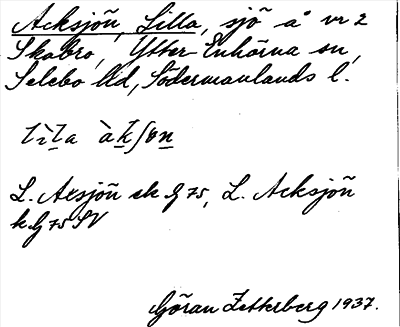 Acksjön, Lilla, sjö å nr 2
Skabro, Ytter Enhörna sn,
Selebo hd, Södermanlands l.
L. Axsjön ek. G 75, L. Acksjön
k. G 75 SV
Göran Zetterberg 1937.